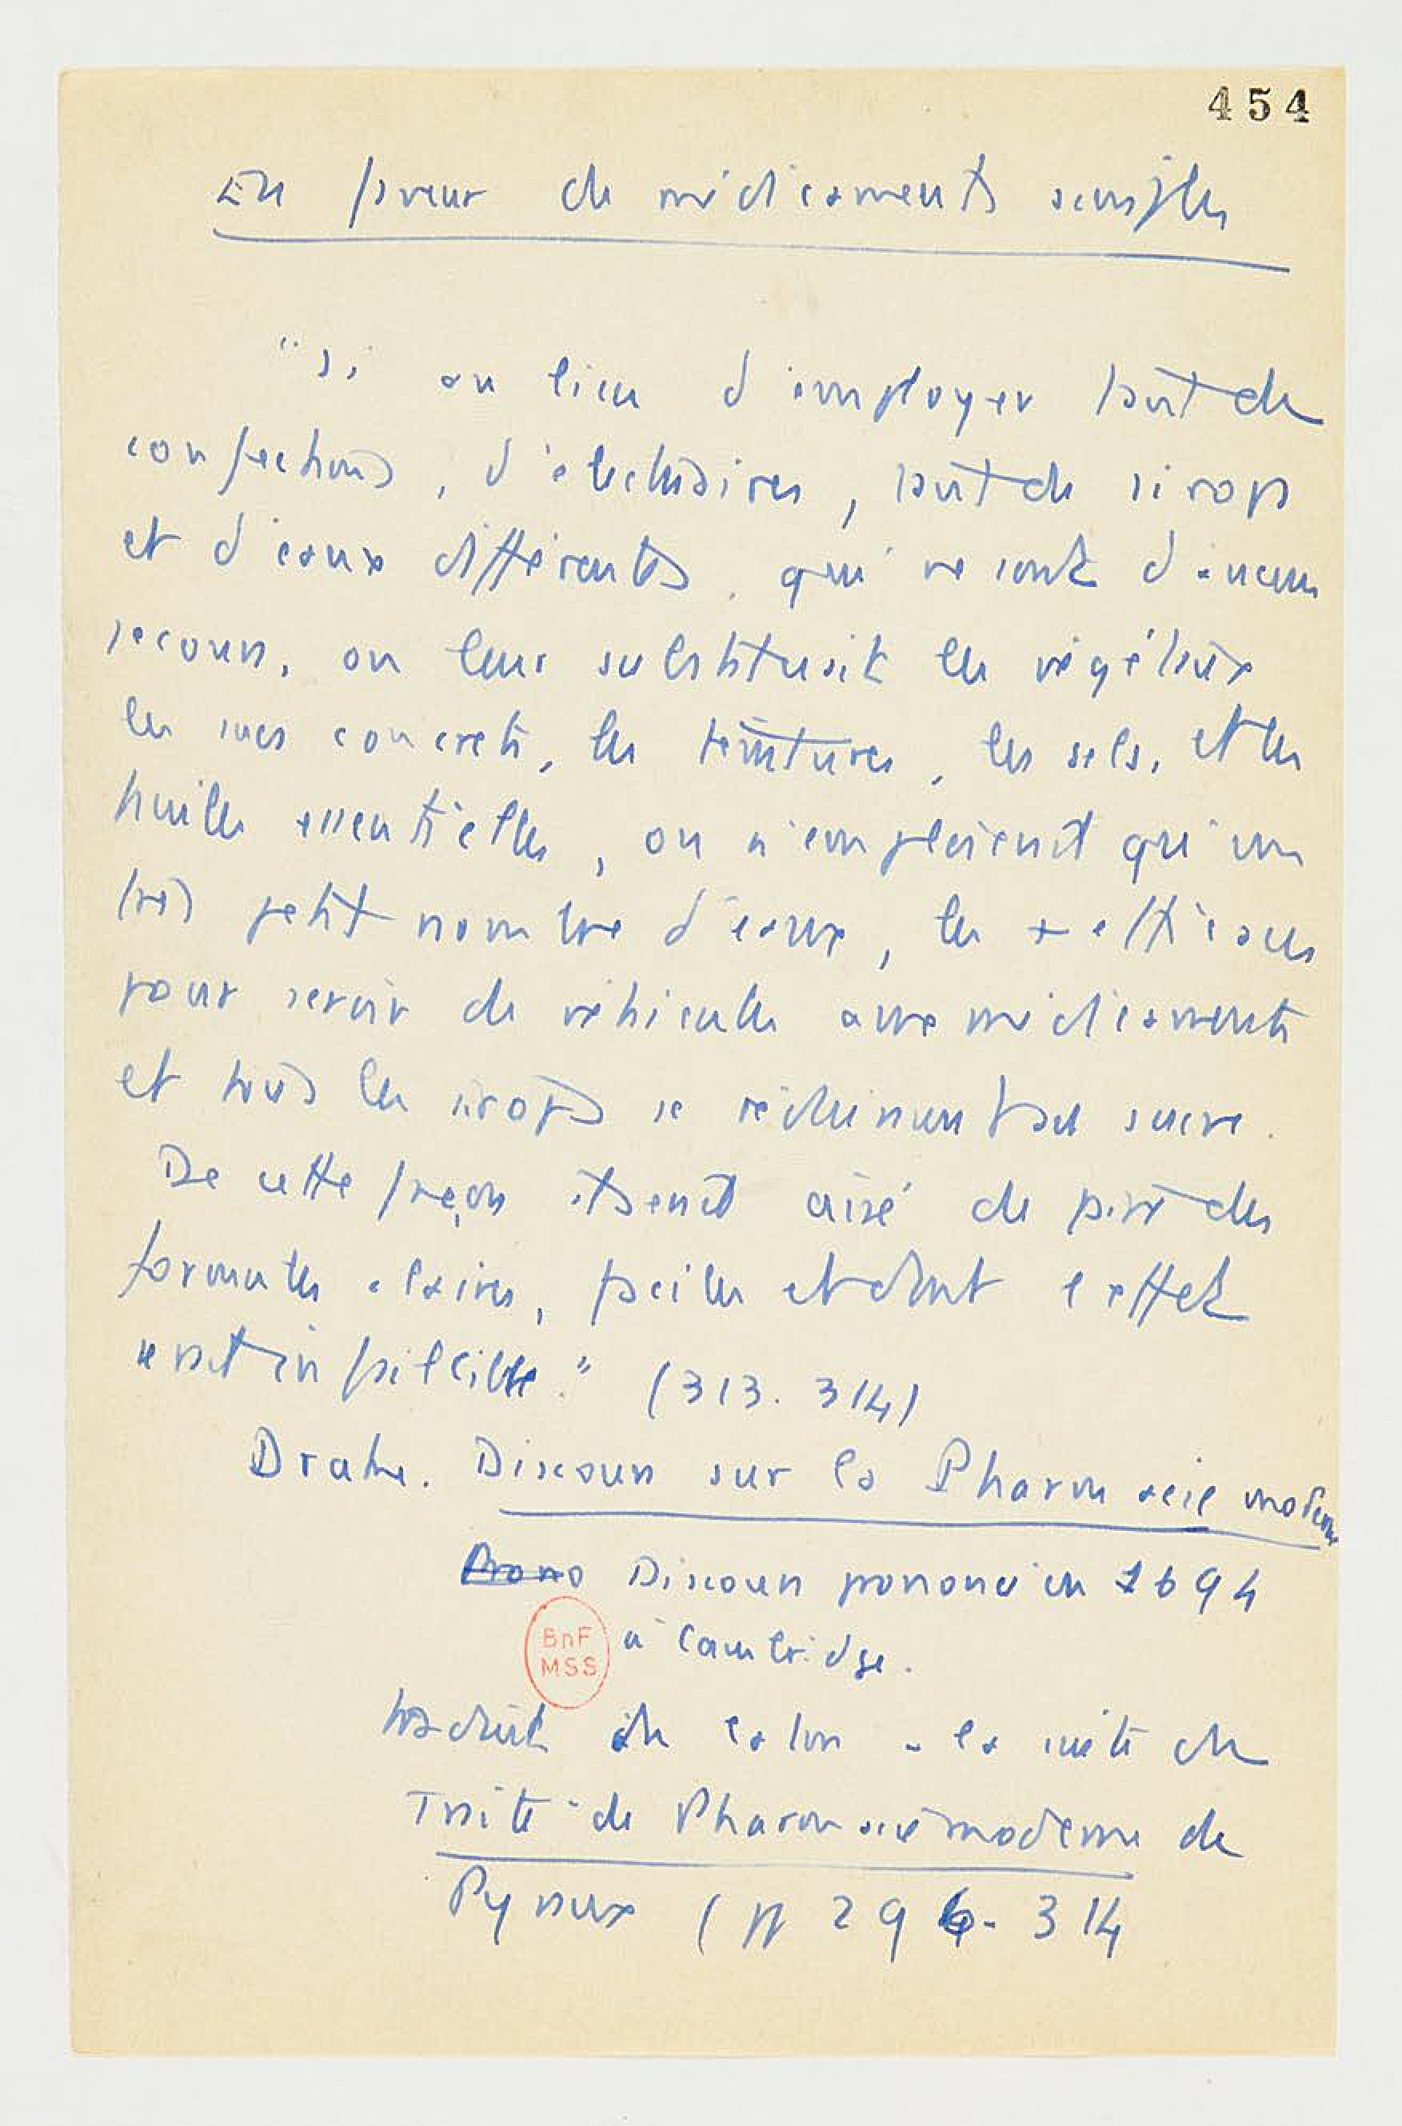 454
En faveur de médicaments simples
"Si au lieu d'employer tant de
confections, d'électuaires, tant de sirops
et d'eaux différentes, qui ne sont d'aucun
secours, on leur substituait les végétaux
les sucs concrets, les teintures, les sels, et les
huiles essentielles, on n'emploierait qu'un
très petit nombre d'eaux, les
pour servir de véhicules aux médicaments
et tous les sirops se réduiraient au sucre.
De cette façon il serait aisé de faire des
formules claires, faciles et dont l'effet
serait infaillible." (313. 314)
Drake. Discours sur la Pharmacie moderne
Prono Discours prononcé en 1694
à Cambridge.
BnF
MSS
traduit du latin à la suite du
Traité de Pharmacie moderne de
(pp 296-314